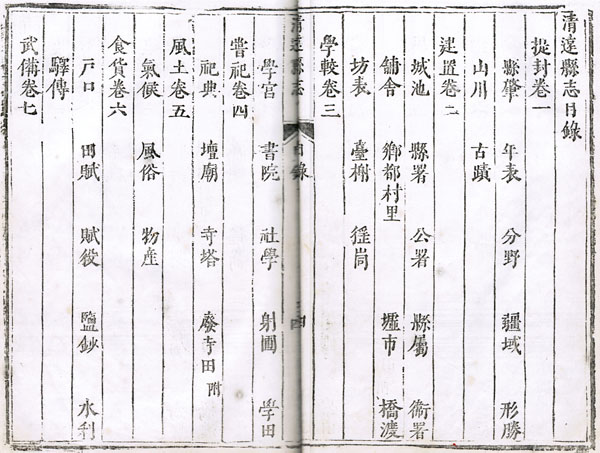 清遠縣志目錄
提封卷一
縣肇 年表 分野 疆域 形勝
山川 古蹟
建置卷二
城池 縣署 公署 縣屬 衛署
舖舍 鄉都村里 墟市 橋渡
坊表 臺榭 徑岡
學較卷三
清遠縣志 目錄
學宮 書院 社學 射圃 學田
嘗祀卷四
祀典 壇廟 寺塔 廢寺田附
風土卷五
氣候 風俗 物產
食貨卷六
戸口 田賦 賦役 鹽鈔 水利
驛傳
武備卷七